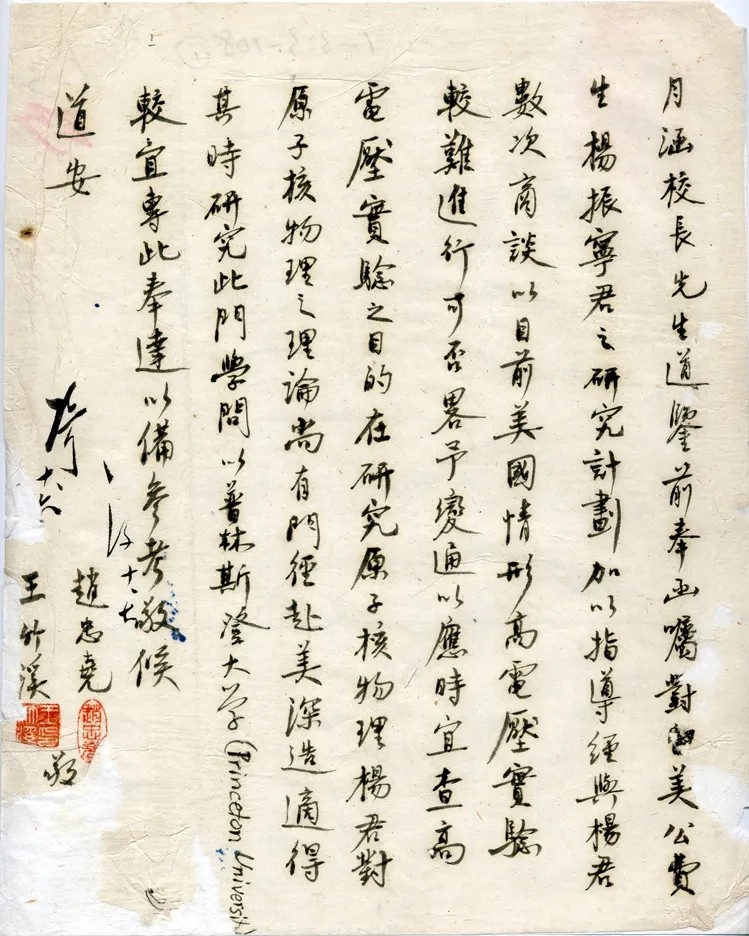 月涵校長先生道鑒前奉函囑對留美公費
生楊振寧君之研究計劃加以指導經與楊君
數次商談以目前美國情形高電壓實驗
較難進行可否畧予變通以應時宜查高
電壓實驗之目的在研究原子核物理楊君對
原子核物理之理論尚有門徑赴美深造適得
其時研究此門學問以普林斯登大学(Princeton Universit
較宜專此奉達以備參考敬候
道安
趙忠堯
王竹溪
敬
十六
十、七